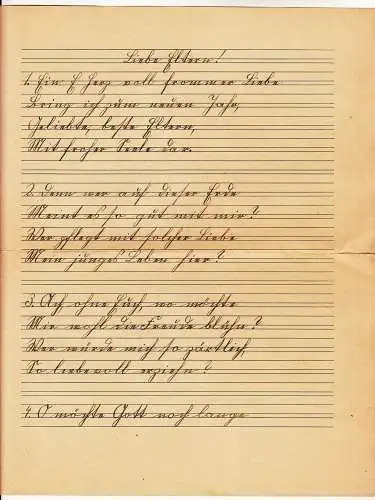 Liebe Eltern!
1. Ein Herz voll frommer Liebe
Bring ich zum neuen Jahr,
Geliebte, beste Eltern,
Mit froher Seele dar.
2. Denn wer auf dieser Erde
Meint es so gut mit mir?
Wer pflegt mit solcher Liebe
Mein junges Leben hier?
3. Ach, ohne Euch, wo möchte
Mir wohl die Freude blühn?
Wer würde mich so zärtlich,
So liebevoll erziehn?
4. O möchte Gott noch lange